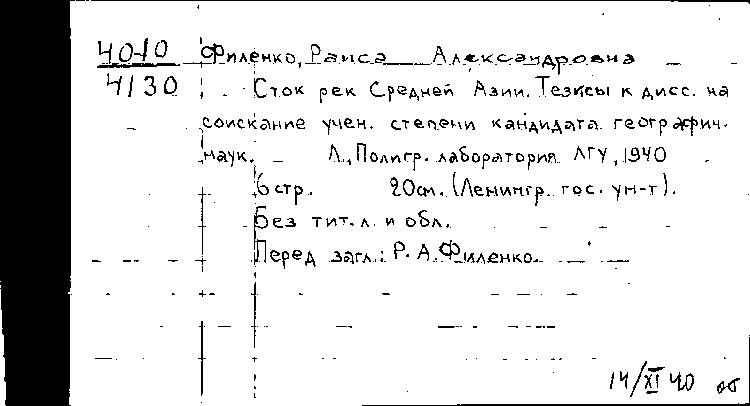 40-10 Филенко, Раиса Александровна
4130 Сток рек Средней Азии. Тезисы к дисс. на
соискание учен. степени кандидата географич.
наук. Л., Полигр. лаборатория ЛГУ, 1940
6 стр. 20см. (Ленингр. гос. ун-т).
Без тит. л. и обл.
Перед загл.: Р. А. Филенко.
14/XI 40